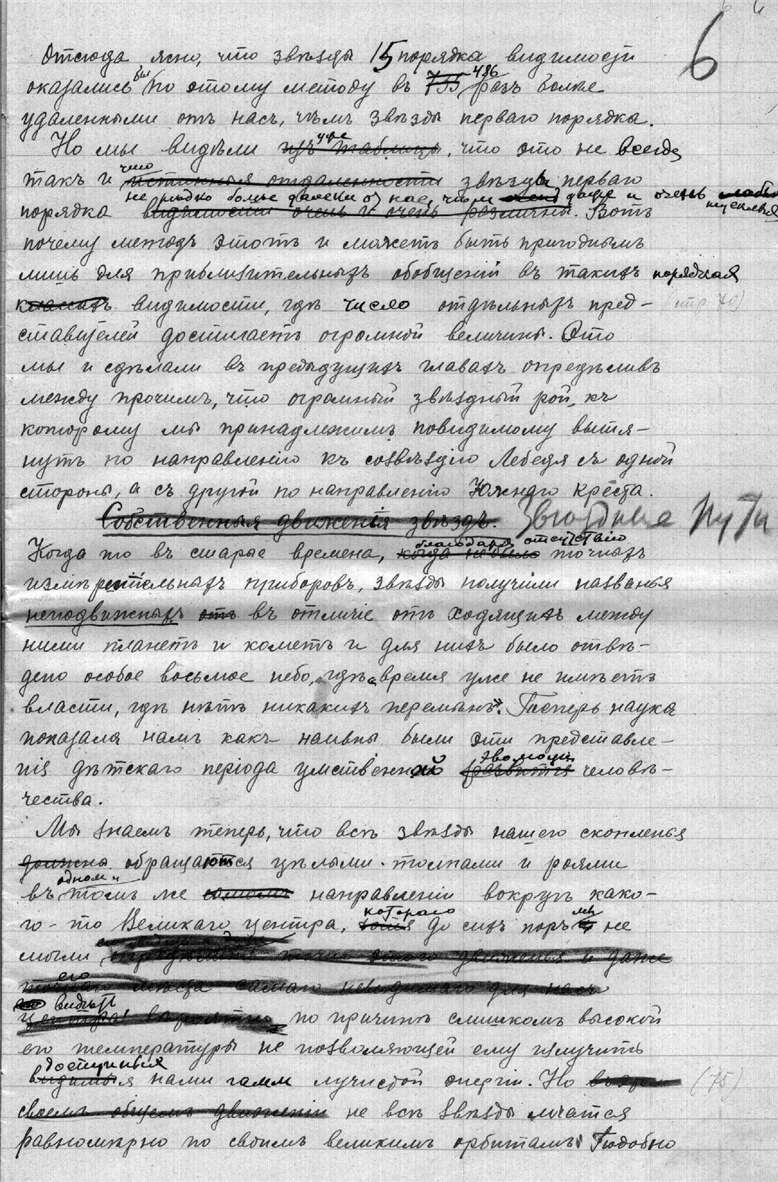 6
Отсюда ясно, что звѣзды 15 порядка видимости
оказались бы по этому методу въ 436 разъ болѣе
удаленными отъ насъ, чѣмъ звѣзды перваго порядка.
Но мы видѣли уже, что это не всегда
такъ и что звѣзды перваго
не рѣдко болѣе далеки отъ нас, чѣм даже и очень
порядка видимости очень и очень различны. Вотъ
почему методъ этотъ и можетъ быть пригоднымъ
лишь для приблизительныхъ обобщеній въ такихъ порядках
классахъ видимости, гдѣ число отдѣльныхъ пред-
(стр 70)
ставителей достигаетъ огромной величины. Это
мы и сдѣлали въ предыдущихъ главахъ опредѣливъ
между прочимъ, что огромный звѣздный рой, къ
которому мы принадлежимъ повидимому вытя-
нутъ по направленію къ созвѣздію Лебедя съ одной
стороны, а съ другой по направленію Южнаго Креста.
Собственныя движенія звѣздъ. Звѣздные пути
Когда то въ старые времена, благодаря отсутствію когда не было точныхъ
измѣрительныхъ приборовъ, звѣзды получили названья
неподвижныхъ отъ въ отличіе отъ ходящихъ между
ними планетъ и кометъ и для нихъ было отвѣ-
дено особое восьмое небо, гдѣ „время уже не имѣетъ
власти, гдѣ нѣтъ никакихъ перемѣнъ". Теперь наука
показала намъ какъ наивны были эти представле-
нія дѣтскаго періода умственной эволюціи развитія человѣ-
чества.
Мы знаемъ теперь, что всѣ звѣзды нашего скопленья
должны обращаются цѣлыми толпами и роями
въ одном и томъ же самомъ направленіи вокругъ како-
го-то Великаго центра, котораго до сихъ поръ мы не
могли
его
видѣть
по причинѣ слишкомъ высокой
его температуры не позволяющей ему излучить
доступныя
видимыя нами гамм лучистой энергіи. Но
(75)
своемъ общемъ движеніи не всѣ звѣзды мчатся
равномѣрно по своимъ великимъ орбитамъ. Подобно